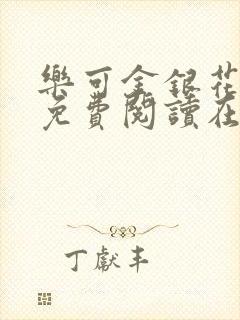 樂可金銀花
免費閱讀在
丁獻丰